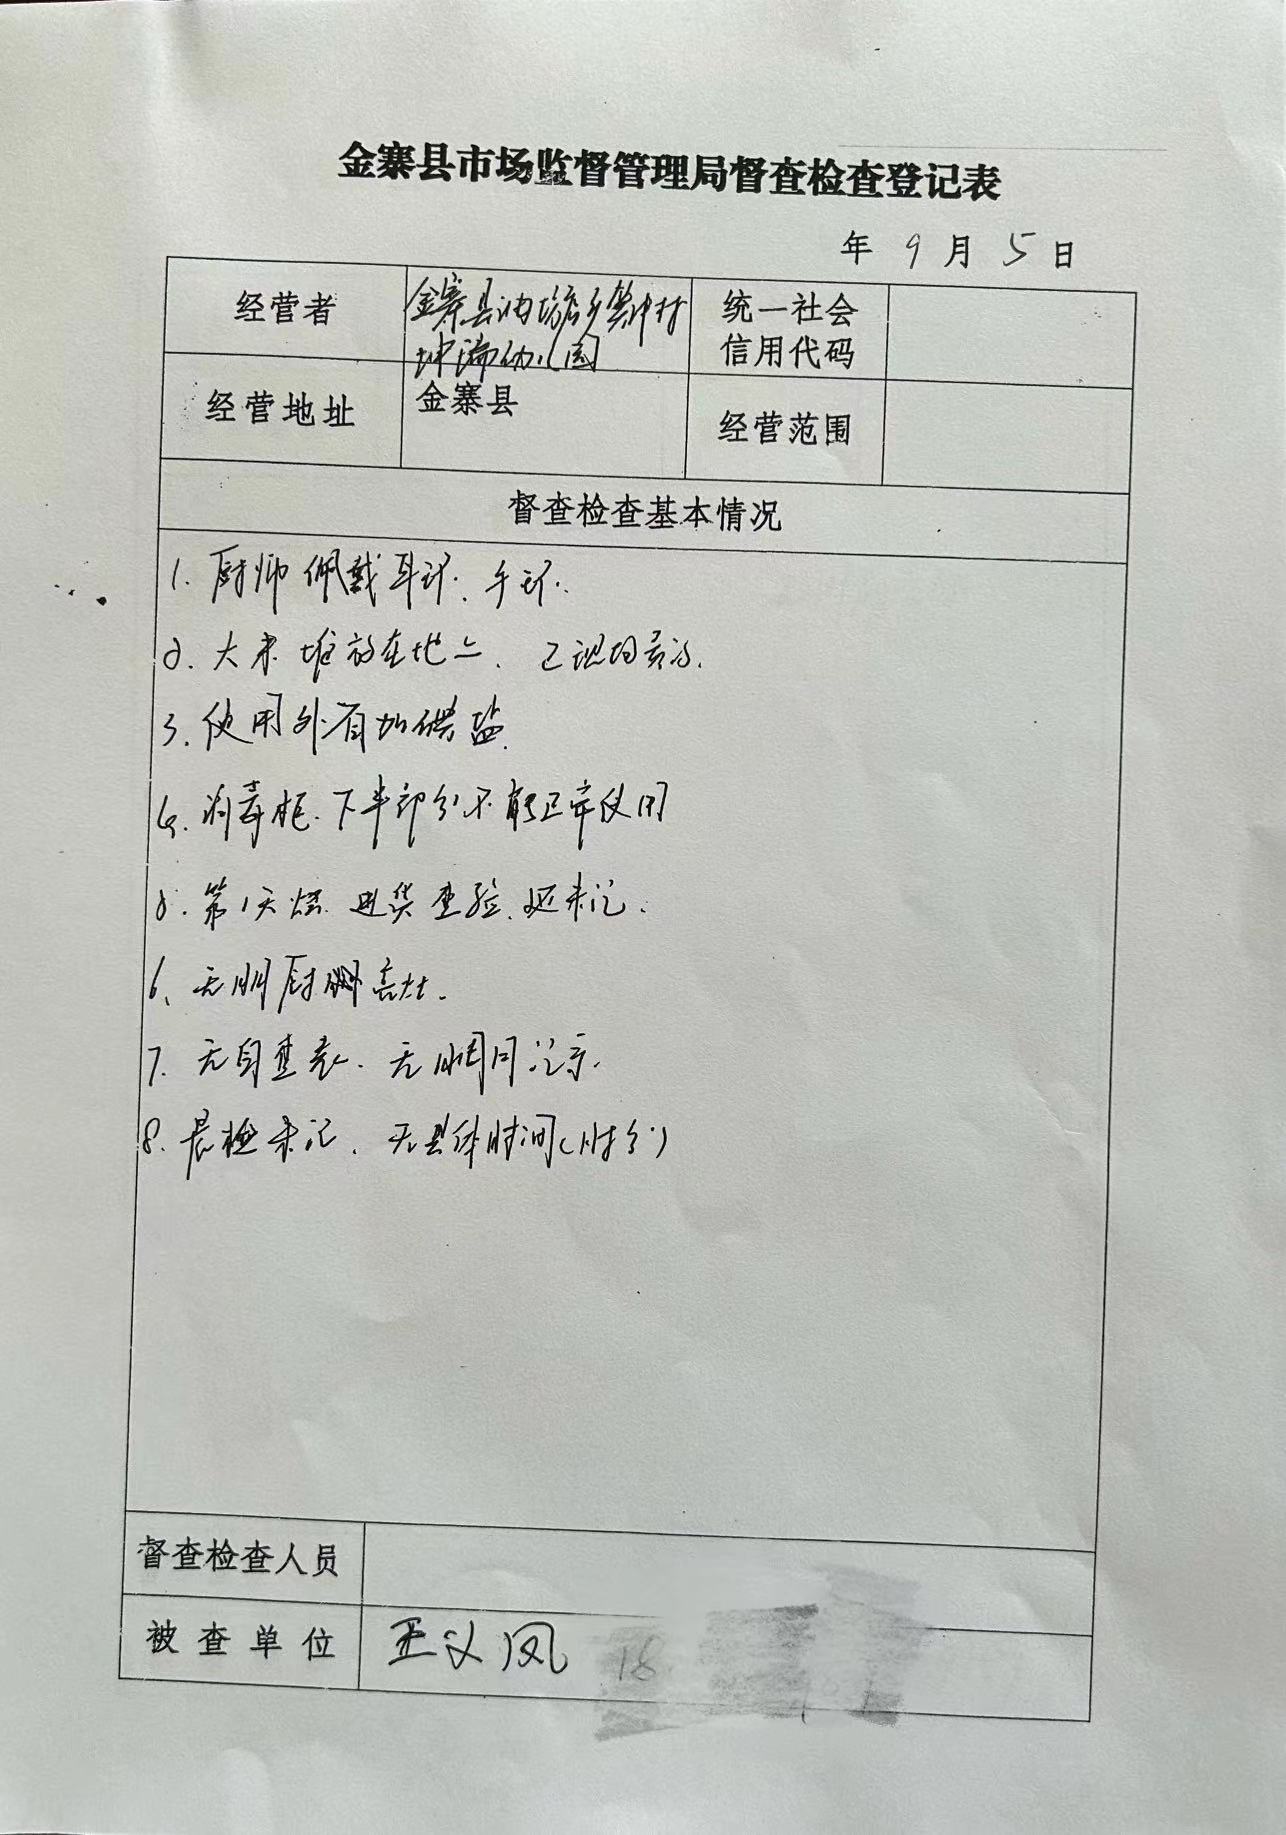 金寨县市场监督管理局督查检查登记表
年 9 月 5 日
经营者
金寨县油坊店乡
幼儿园
统一社会
信用代码
经营地址
金寨县
经营范围
督查检查基本情况
1. 厨师佩戴耳环、手环.
2. 大米堆放在地上、已现场
3. 使用外省加碘盐.
4. 消毒柜下半部分不能正常使用
5. 第1天 进货查验、还未记.
6、无明厨亮灶.
7. 无自查表、无 记录.
8. 晨检未记、无具体时间(时分)
督查检查人员
被查单位
王义凤 18